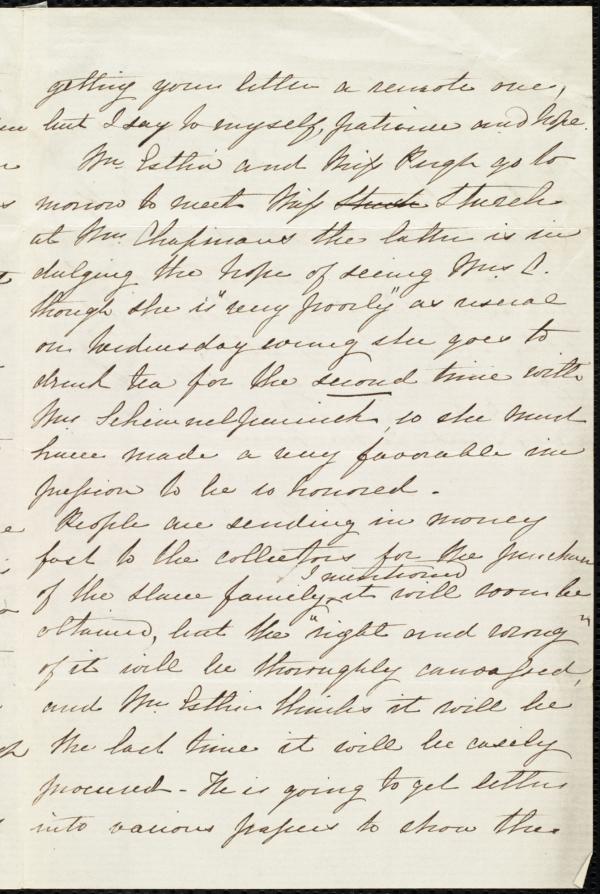 getting your letter a remote one,
but I say to myself, patience and hope.
Mr. Estlin and Miss Pugh go to
morrow to meet Miss Sturch Sturch
at Mrs. Chapman's the latter is in
dulging the hope of seeing Mrs C.
though she is "very poorly" as usual
on Wednesday evening she goes to
drink tea for the second time with
Mrs Schimmelpenninck, so she must
have made a very favorable im
pression to be so honored.
People are sending in money
fast to the collectors for the purchase
of the slave family I mentioned it will soon be
obtained, but the "right and wrong"
of it will be thoroughly canvassed,
and Mr. Estlin thinks it will be
the last time it will be easily
procured - He is going to get letters
into various papers to show the